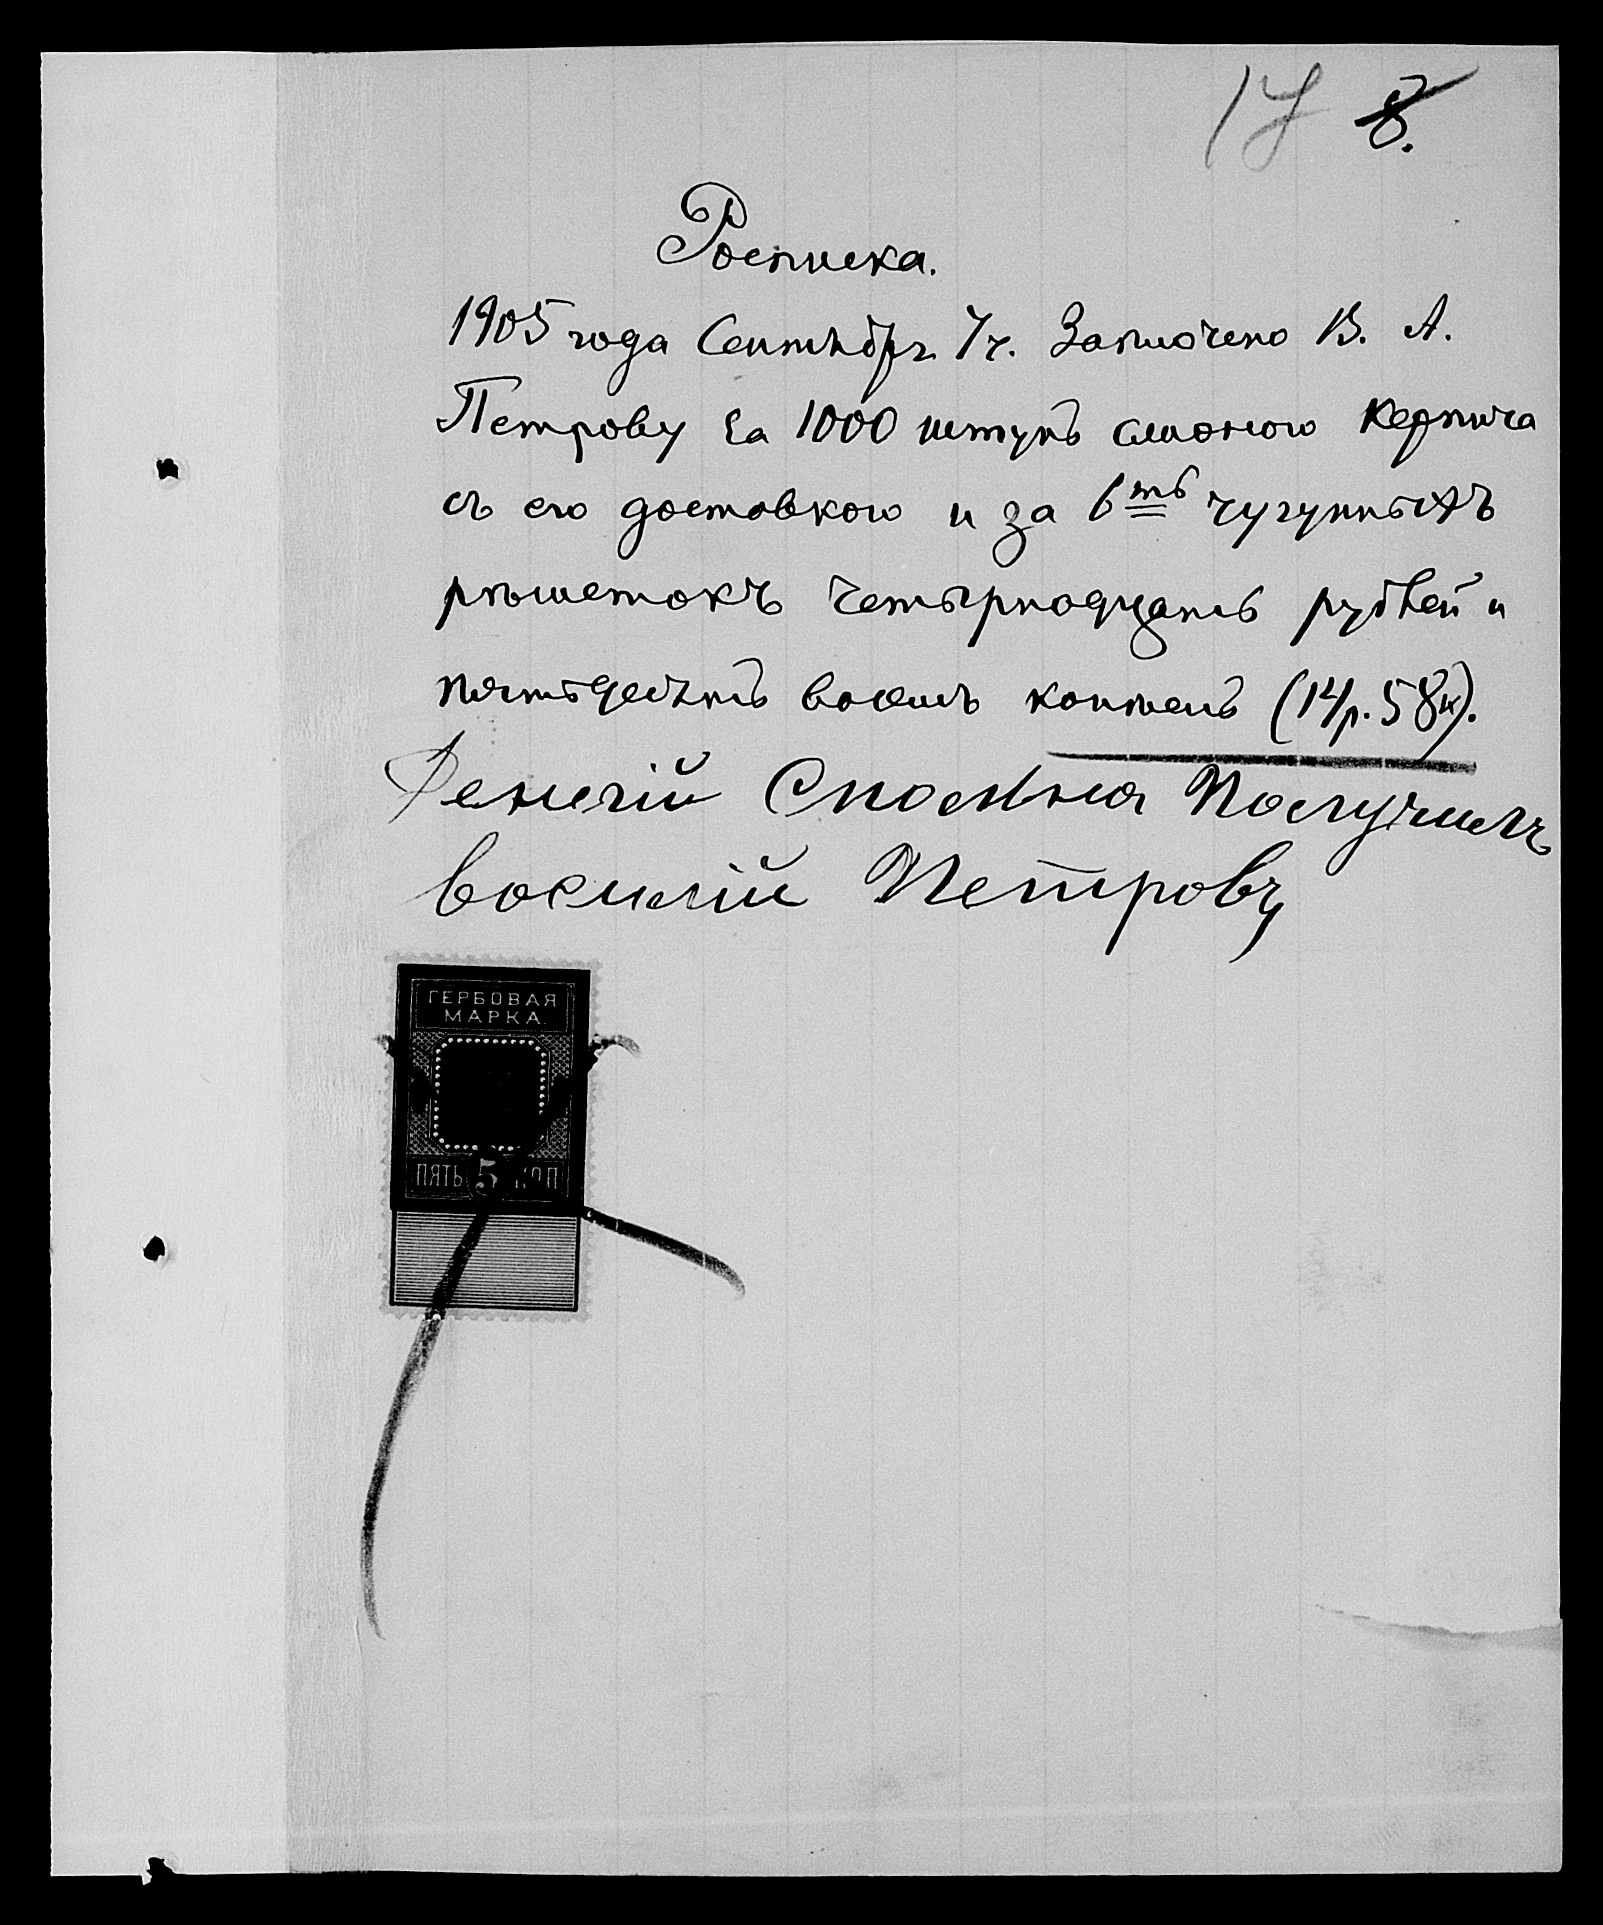 17 8.
Росписка.
1905 года Сентября 7 ч. Заплочено В. А.
Петрову за 1000 штукъ кирпича
съ его доставкою и за 6ть чугунныхъ
рѣшетокъ четырнадцать рублей и
пятьдесятъ восемь копѣекъ (14 р. 58 к).
Денгий Сполнна Получилъ
василий Петровъ
ГЕРБОВАЯ
МАРКА
ПЯТЬ 5 КОП